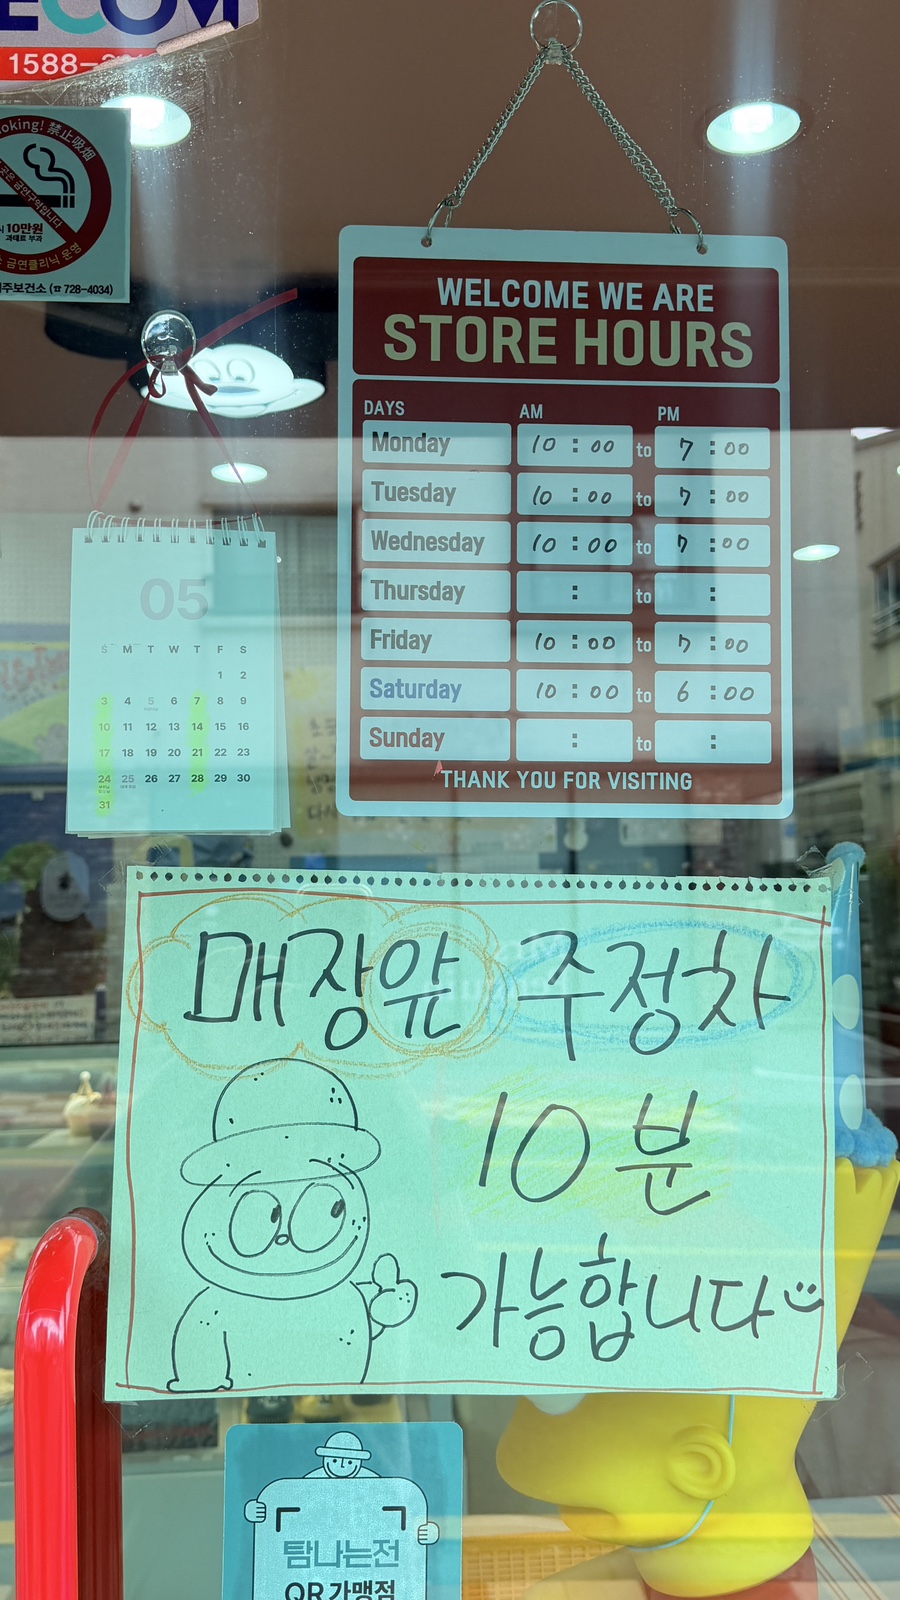 ECOM
1588-
oking! 禁止吸烟
곳은 금연구역입니다
10만원
과태료 부과
금연클리닉 운영
주보건소 (☎ 728-4034)
WELCOME WE ARE
STORE HOURS
DAYS AM PM
Monday 10 : 00 to 7 : 00
Tuesday 10 : 00 to 7 : 00
Wednesday 10 : 00 to 7 : 00
Thursday : to :
Friday 10 : 00 to 7 : 00
Saturday 10 : 00 to 6 : 00
Sunday : to :
THANK YOU FOR VISITING
05
S M T W T F S
1 2
3 4 5 6 7 8 9
10 11 12 13 14 15 16
17 18 19 20 21 22 23
24 25 26 27 28 29 30
31
매장앞 주정차
10분
가능합니다
탐나는전
QR 가맹점